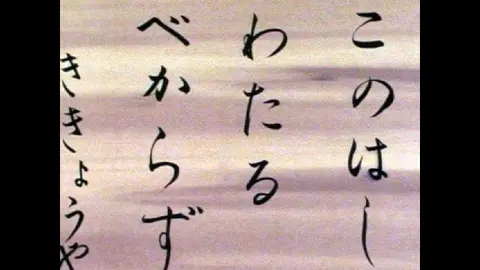 このはし
わたる
べからず
ききょうや